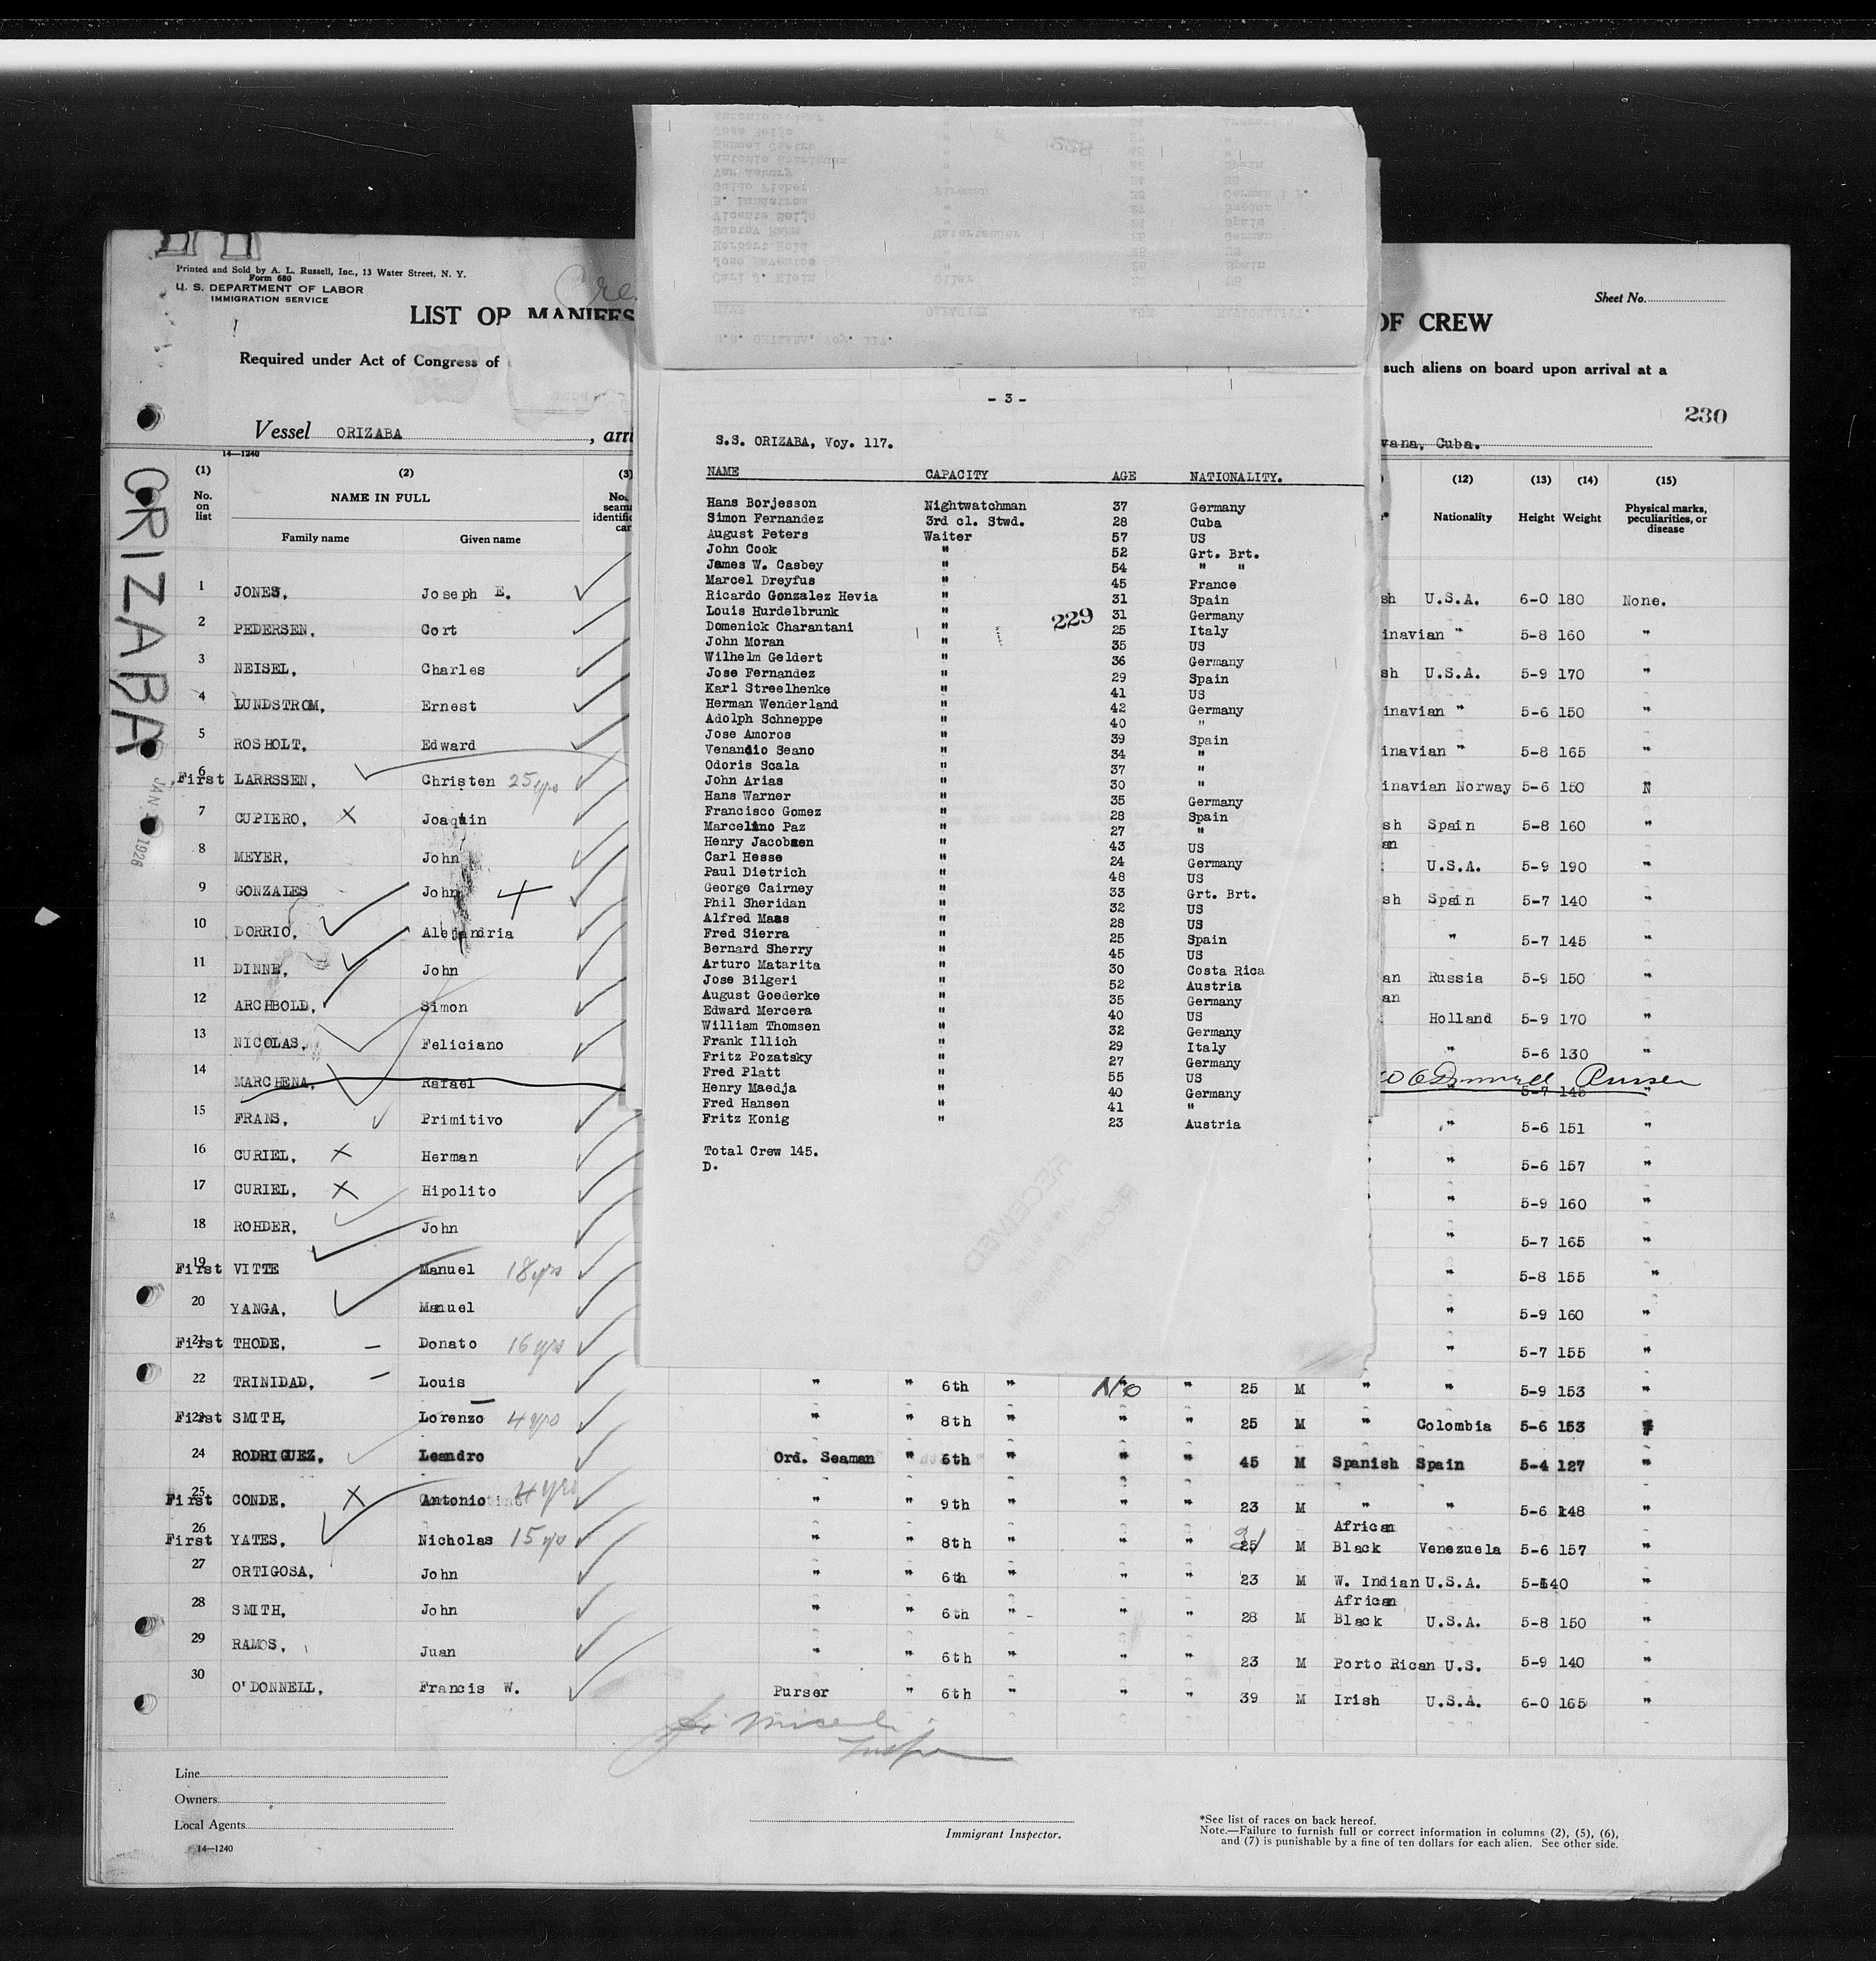 Printed and Sold by A. L. Russell, Inc., 13 Water Street, N. Y.
Form 680
U. S. DEPARTMENT OF LABOR
IMMIGRATION SERVICE
Sheet No.
LIST OR MANIFES
OF CREW
Required under Act of Congress of
such aliens on board upon arrival at a
230
Vessel ORIZABA, arri
vana, Cuba.
14—1240
ORIZABA
JAN 1926
(1) (2) (3) (12) (13) (14) (15)
No. on list NAME IN FULL Nationality Height Weight Physical marks, peculiarities, or disease
Family name Given name
1 JONES, Joseph E. sh U.S.A. 6-0 180 None.
2 PEDERSEN, Cort inavian " 5-8 160 "
3 NEISEL, Charles sh U.S.A. 5-9 170 "
4 LUNDSTROM, Ernest inavian " 5-6 150 "
5 ROSHOLT, Edward inavian " 5-8 165 "
6 First LARRSSEN, Christen 25 yrs inavian Norway 5-6 150 N
7 CUPIERO, X Joaquin sh Spain 5-8 160 "
8 MEYER, John an U.S.A. 5-9 190 "
9 GONZALES John sh Spain 5-7 140 "
10 DORRIO, Alejandria " 5-7 145 "
11 DINNE, John an Russia 5-9 150 "
12 ARCHBOLD, Simon an Holland 5-9 170 "
13 NICOLAS, Feliciano " 5-6 130 "
14 MARCHENA, Rafael O'Donnell Purser 5-7 145 "
15 FRANS, Primitivo " 5-6 151 "
16 CURIEL, X Herman " 5-6 157 "
17 CURIEL, X Hipolito " 5-9 160 "
18 ROHDER, John " 5-7 165 "
19 First VITTE Manuel 18 yrs " 5-8 155 "
20 YANGA, Manuel " 5-9 160 "
21 First THODE, Donato 16 yrs " 5-7 155 "
22 TRINIDAD, Louis " " 6th " No " 25 M " " 5-9 153 "
23 First SMITH, Lorenzo 4 yrs " " 8th " " " 25 M " Colombia 5-6 153 "
24 RODRIGUEZ, Leandro Ord. Seaman " 6th " " " 45 M Spanish Spain 5-4 127 "
25 First CONDE, X Antonio 4 yrs " " 9th " " " 23 M " " 5-6 148 "
26 First YATES, Nicholas 15 yrs " " 8th " " " 25 M African Black Venezuela 5-6 157 "
27 ORTIGOSA, John " " 6th " " " 23 M W. Indian U.S.A. 140 "
28 SMITH, John " " 6th " " " 28 M African Black U.S.A. 5-8 150 "
29 RAMOS, Juan " " 6th " " " 23 M Porto Rican U.S. 5-9 140 "
30 O'DONNELL, Francis W. Purser " 6th " " " 39 M Irish U.S.A. 6-0 165 "
Line
Owners
Local Agents
14—1240
Immigrant Inspector.
*See list of races on back hereof.
Note.—Failure to furnish full or correct information in columns (2), (5), (6),
and (7) is punishable by a fine of ten dollars for each alien. See other side.
- 3 -
S.S. ORIZABA, Voy. 117.
NAME CAPACITY AGE NATIONALITY.
Hans Borjesson Nightwatchman 37 Germany
Simon Fernandez 3rd cl. Stwd. 28 Cuba
August Peters Waiter 57 US
John Cook " 52 Grt. Brt.
James W. Casbey " 54 " "
Marcel Dreyfus " 45 France
Ricardo Gonzalez Hevia " 31 Spain
Louis Hurdelbrunk " 31 Germany
229
Domenick Charantani " 25 Italy
John Moran " 35 US
Wilhelm Geldert " 36 Germany
Jose Fernandez " 29 Spain
Karl Streelhenke " 41 US
Herman Wenderland " 42 Germany
Adolph Schneppe " 40 "
Jose Amoros " 39 Spain
Venandio Seano " 34 "
Odoris Scala " 37 "
John Arias " 30 "
Hans Warner " 35 Germany
Francisco Gomez " 28 Spain
Marcelino Paz " 27 "
Henry Jacobsen " 43 US
Carl Hesse " 24 Germany
Paul Dietrich " 48 US
George Cairney " 33 Grt. Brt.
Phil Sheridan " 32 US
Alfred Maas " 28 US
Fred Sierra " 25 Spain
Bernard Sherry " 45 US
Arturo Matarita " 30 Costa Rica
Jose Bilgeri " 52 Austria
August Goederke " 35 Germany
Edward Mercera " 40 US
William Thomsen " 32 Germany
Frank Illich " 29 Italy
Fritz Pozatsky " 27 Germany
Fred Platt " 55 US
Henry Maedja " 40 Germany
Fred Hansen " 41 "
Fritz Konig " 23 Austria
Total Crew 145.
D.